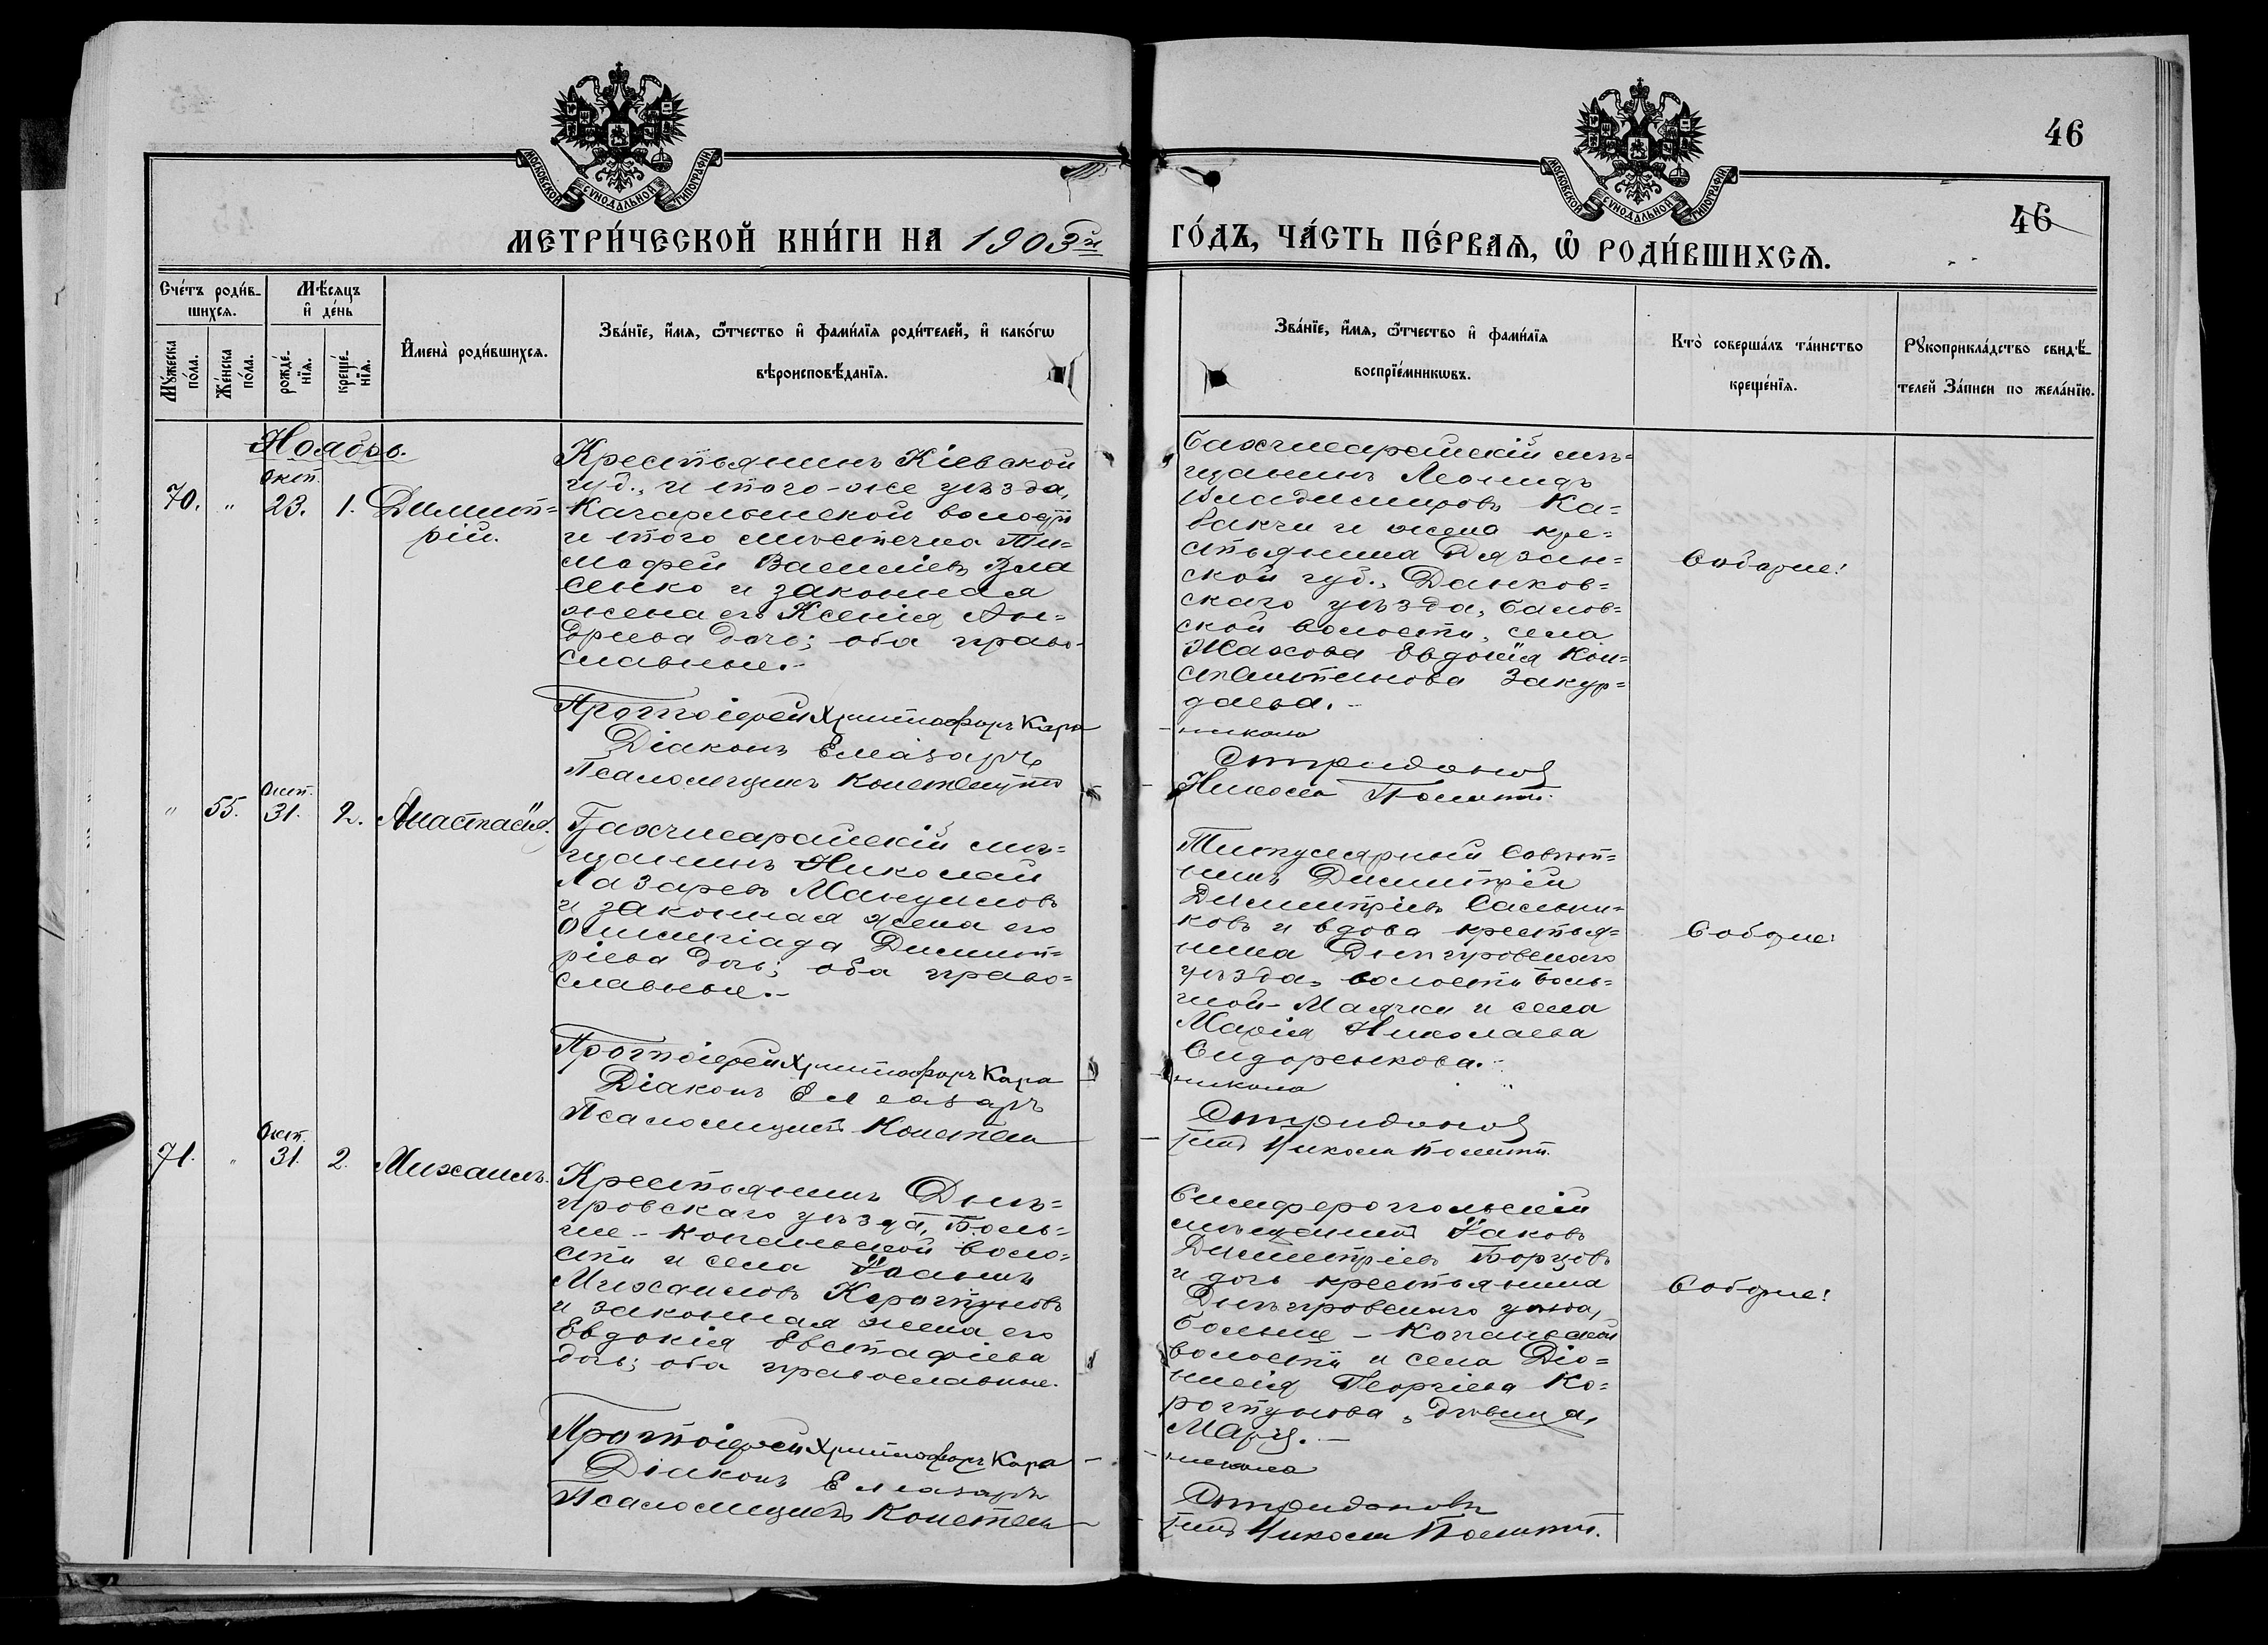 46
46
МОСКОВСКОЙ СѴНОДАЛЬНОЙ ТИПОГРАФІИ
МОСКОВСКОЙ СѴНОДАЛЬНОЙ ТИПОГРАФІИ
МЕТРИ́ЧЕСКОЙ КНИ́ГИ НА 1903й
ГО́ДЪ, ЧА́СТЬ ПЕ́РВАѦ, Ѡ РОДИ́ВШИХСѦ.
Сче́тъ роди́в-
шихся.
Мѣ́сяцъ
и де́нь
Му́жеска
по́ла.
Же́нска
по́ла.
рожде́-
нїя.
креще́-
нїя.
Имена̀ роди́вшихся.
Зва́нїе, и́мя, ѻ҆́тчество и фами́лїя роди́телей, и како́гѡ
вѣроисповѣ́данїя.
Зва́нїе, и́мя, ѻ҆́тчество и фами́лїя
воспрїе́мникѡвъ.
Кто̀ соверша́лъ та́инство
креще́нїя.
Рукоприкла́дство свидѣ́-
телей За́писи по жела́нїю.
Ноябрь.
70. " Окт. 23. 1. Димит=
рій.
Крестьянинъ Кіевской
губ., и того-же уѣзда,
Кагарлыкской волости
и того мѣстечка Ти=
мофей Васильевъ Вла
сенко и законная
жена его Ксенія Ан=
дреева дочь; оба право-
славные.-
Протоіерей Христофоръ Кара
Діаконъ Елеазаръ
Псаломщикъ Константинъ
Бахчисарайскій мѣ=
щанинъ Леонидъ
Владимировъ Ка=
вакчи и жена кре=
стьянина Рязан=
ской губ., Данков=
скаго уѣзда,
ской волости, села
Жахова Евдокія Кон=
стантинова Закур=
даева.-
никола
Спиридоновъ
Никола Полит
Соборне!
" 55. Окт. 31. 2. Анастасія.
Бахчисарайскій мѣ=
щанинъ Николай
Лазаревъ
и законная жена его
Олимпіада Димит=
ріева дочь; оба право=
славные.-
Протоіерей Христофоръ Кара
Діаконъ Елеазаръ
Псаломщикъ Констан
Титулярный Совѣт=
никъ Димитрій
Димитріевъ Сальни=
ковъ и вдова крестья=
нина Днѣпровскаго
уѣзда, волости Боль=
шой-Маячки и села
Марія Николаева
Сидоренкова.-
никола
Спиридоновъ
тинъ Никола Полит
Соборне!
71. " Окт. 31. 2. Михаилъ.
Крестьянинъ Днѣ=
провскаго уѣзда, Боль=
ше-Копаньской воло=
сти и села Іоаннъ
Михаиловъ Коропуновъ
и законная жена его
Евдокія Евстафіева
дочь; оба православные.
Протоіерей Христофоръ Кара
Діаконъ Елеазаръ
Псаломщикъ Констан
Симферопольскій
мѣщанинъ Іаковъ
Димитріевъ Борцовъ
и дочь крестьянина
Днѣпровскаго уѣзда,
Больше-Копаньской
волости и села Діо=
нисія Георгіева Ко=
ропунова, дѣвица,
Марѳа.-
никола
Спиридоновъ
тинъ Никола Полит.
Соборне!